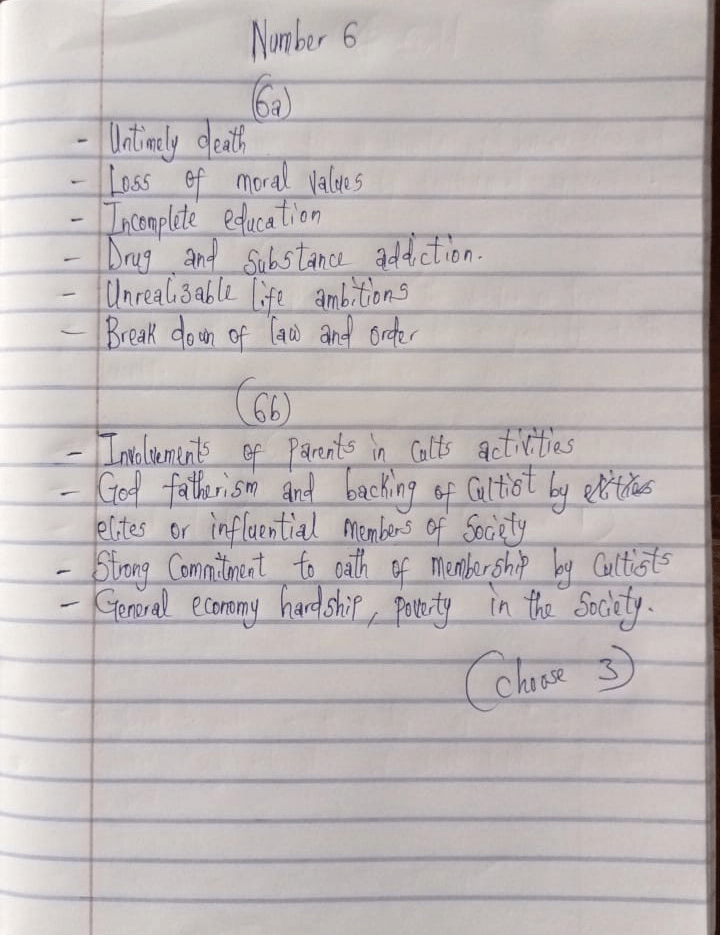 Number 6
(6a)
- Untimely death
- Loss of moral values
- Incomplete education
- Drug and substance addiction.
- Unrealizable life ambitions
- Break down of law and order
(6b)
- Involvements of parents in cults activities
- God fatherism and backing of Cultist by
elites or influential members of Society
- Strong Commitment to oath of membership by Cultists
- General economy hardship, poverty in the Society.
(choose 3)